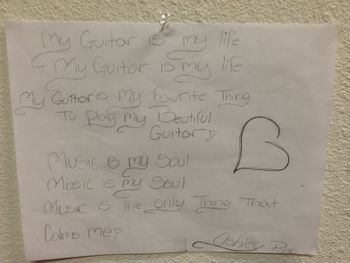 My Guitar is my life
My Guitar is my life
My Guitar is My favorite Thing
To play my Beutiful
Guitar
Music is my Soul
Music is my Soul
Music is The only Thing That
Calms me
Ashley